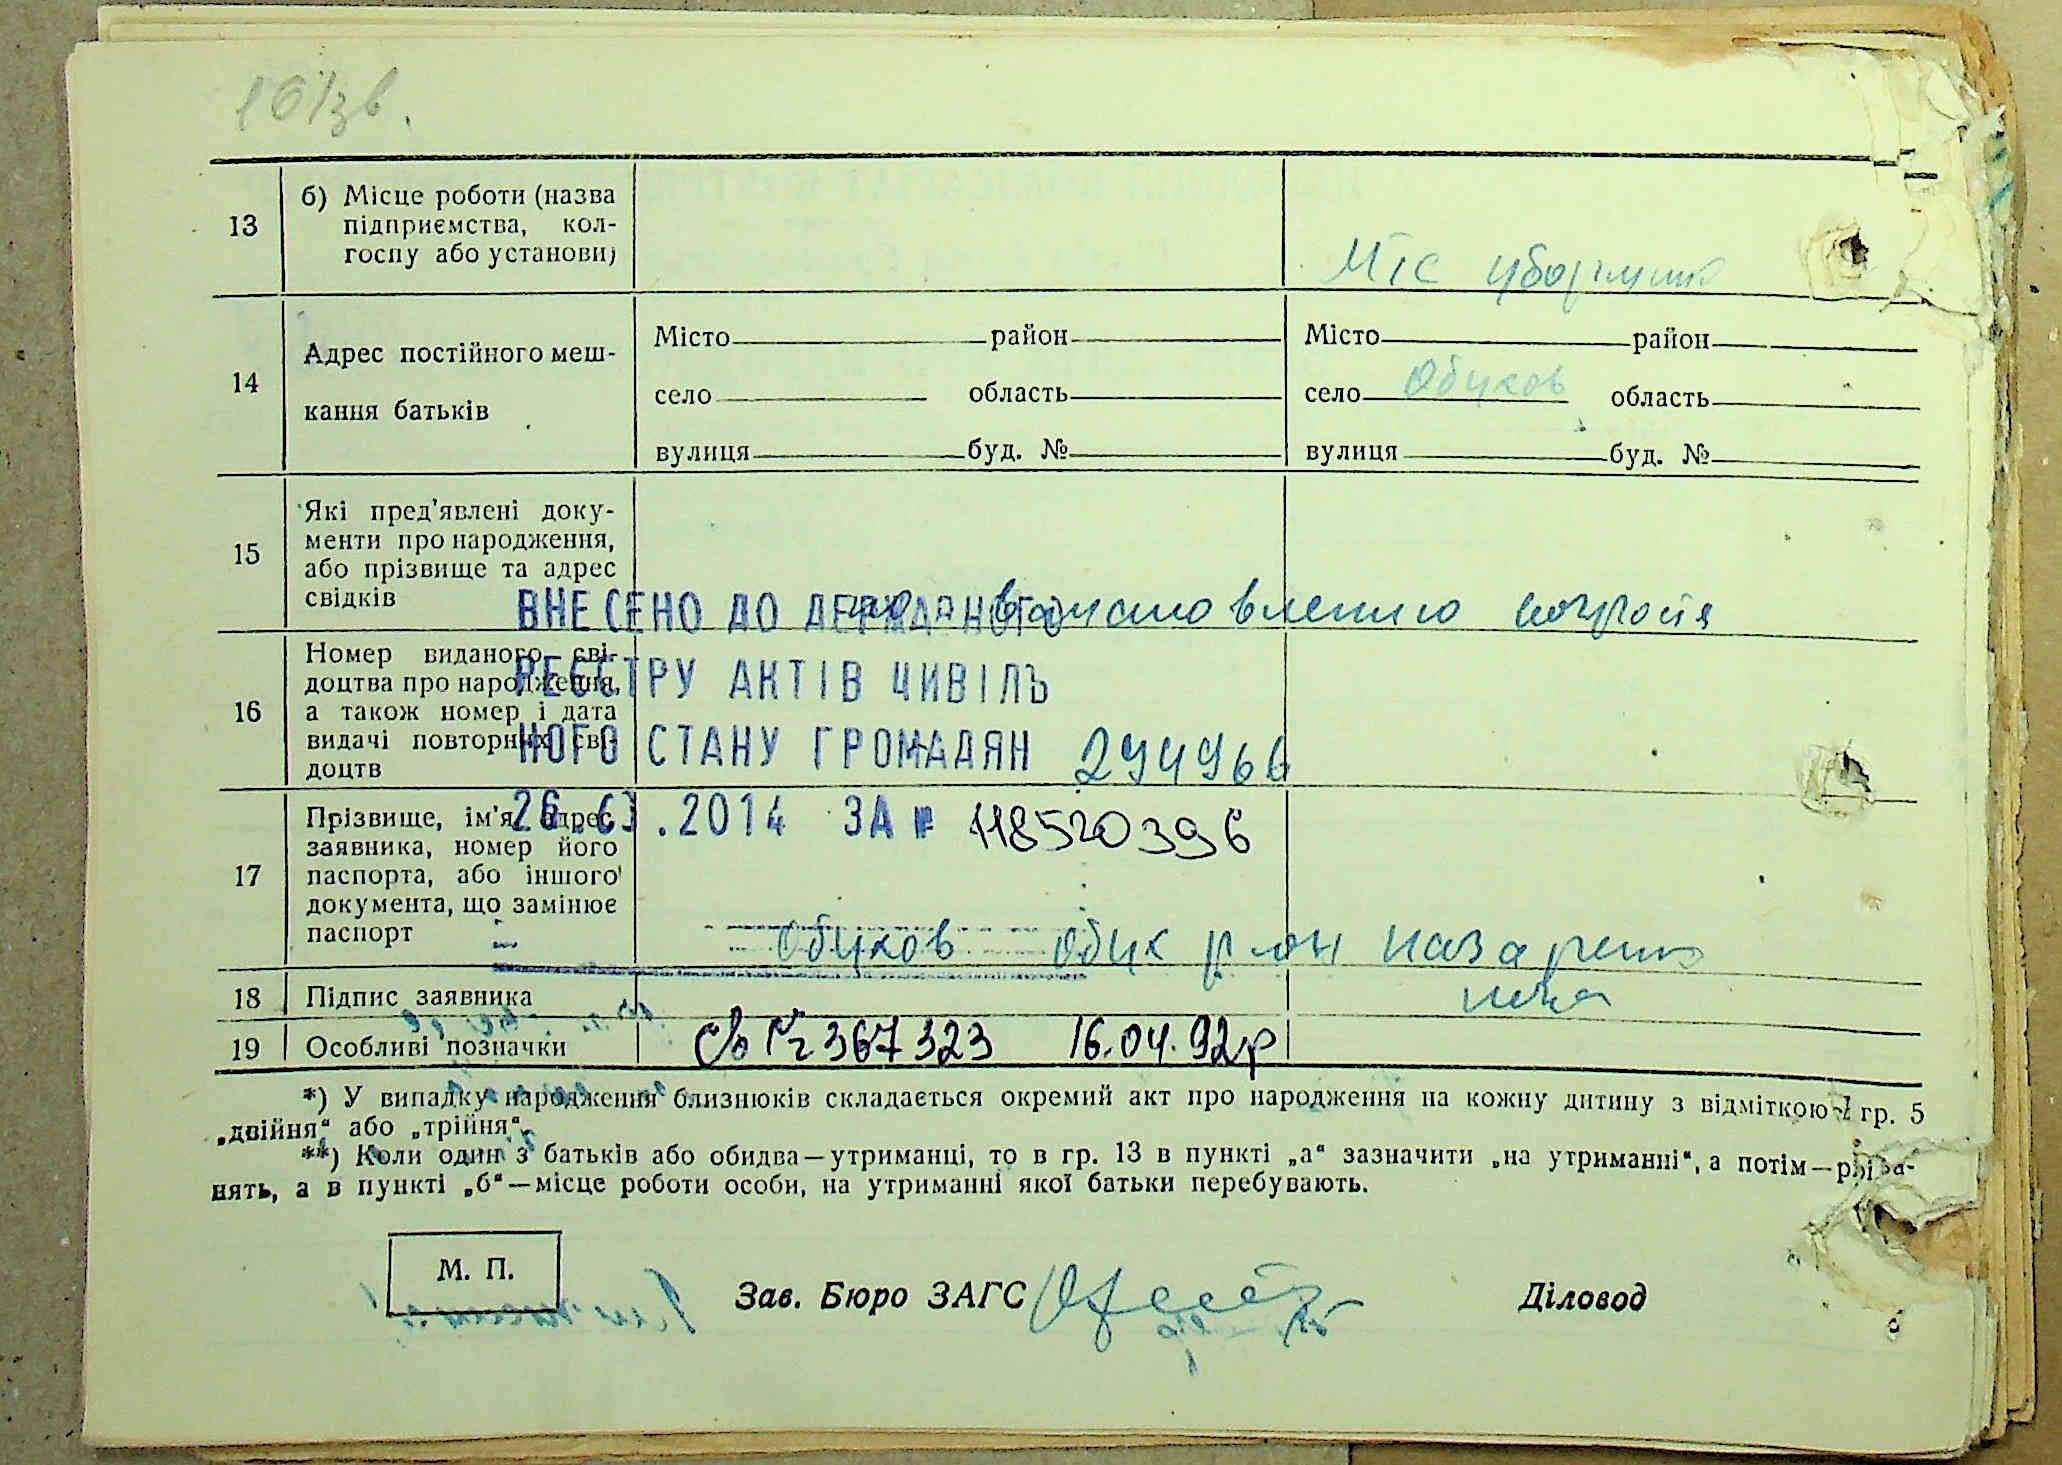 16/зв.
13
б) Місце роботи (назва
підприємства, кол-
госпу або установи)
МТС
14
Адрес постійного меш-
кання батьків
Місто район
село область
вулиця буд. №
Місто район
село Обухов область
вулиця буд. №
15
Які пред'явлені доку-
менти про народження,
або прізвище та адрес
свідків
16
Номер виданого сві-
доцтва про народження,
а також номер і дата
видачі повторних сві-
доцтв
294966
ВНЕСЕНО ДО ДЕРЖАВНОГО
РЕЄСТРУ АКТІВ ЦИВІЛЬ
НОГО СТАНУ ГРОМАДЯН
.2014 ЗА № 118520396
17
Прізвище, ім'я, адрес
заявника, номер його
паспорта, або іншого
документа, що замінює
паспорт
Обухов Обух
18
Підпис заявника
19
Особливі позначки
367323 16.04.92р
*) У випадку народження близнюків складається окремий акт про народження на кожну дитину з відміткою в гр. 5
„двійня“ або „трійня“.
**) Коли один з батьків або обидва—утриманці, то в гр. 13 в пункті „а“ зазначити „на утриманні“, а потім—рід за-
нять, а в пункті „б“—місце роботи особи, на утриманні якої батьки перебувають.
М. П.
Зав. Бюро ЗАГС
Діловод